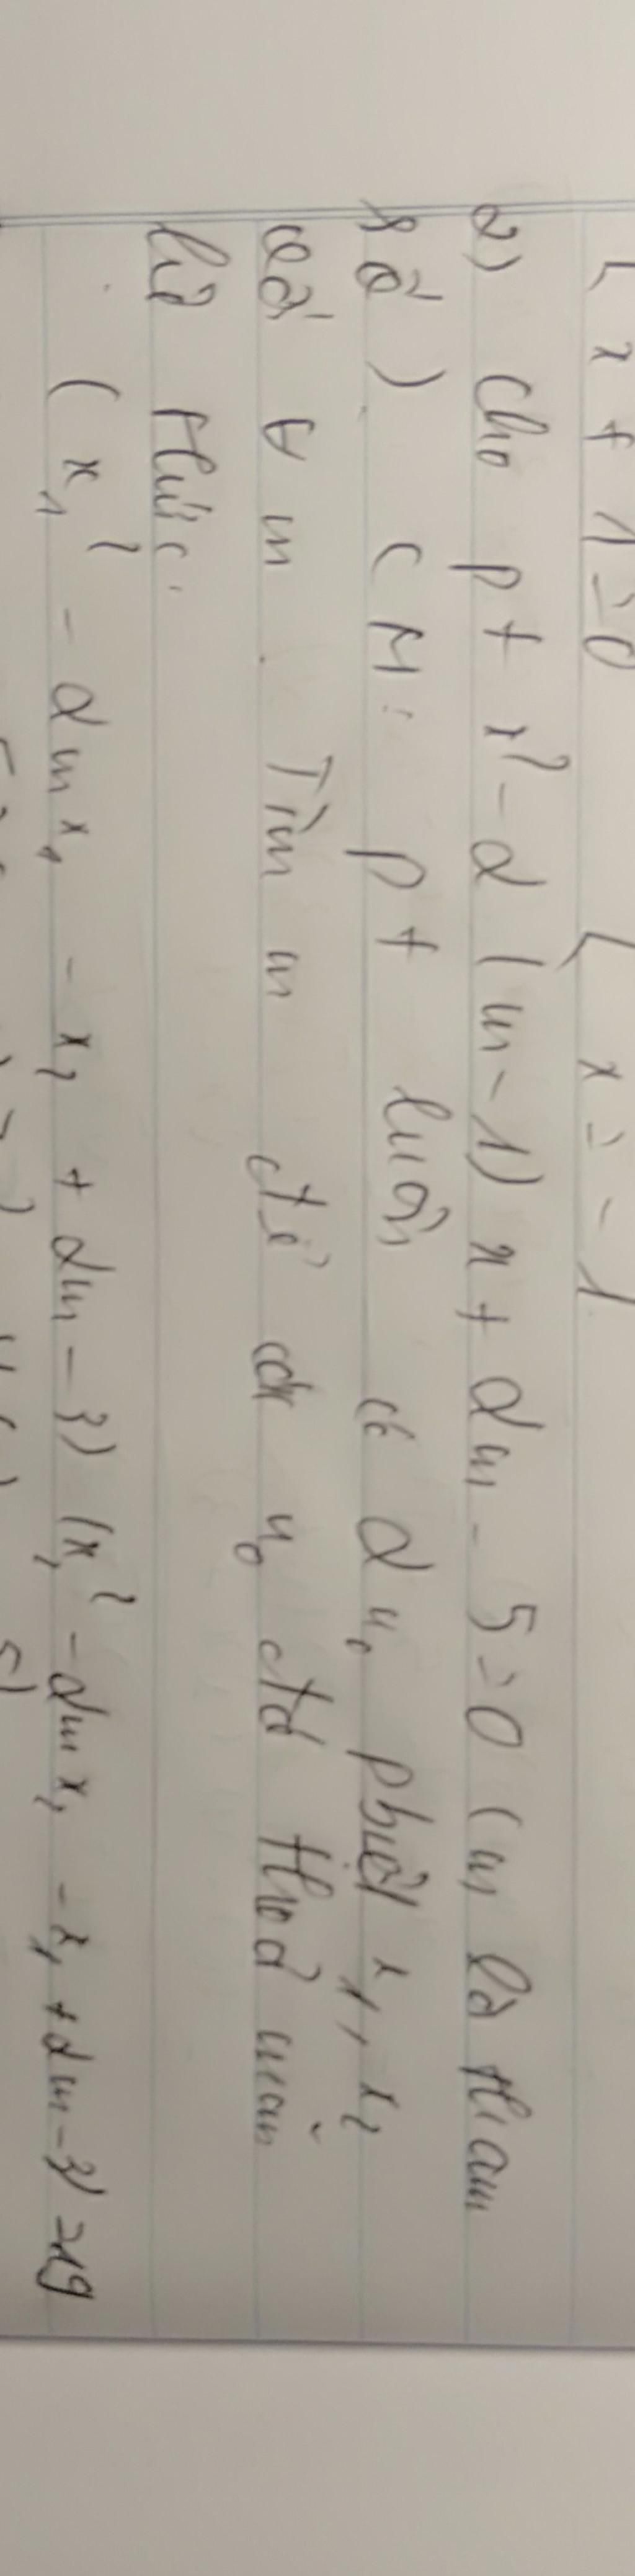 { x + 1 = 0 { x = - 1
2) Cho pt x² - 2 (m - 1) x + 2m - 5 = 0 (m là tham
số) CM: pt luôn có 2 n₀ pbiệt x₁, x₂
với ∀ m. Tìm m để các n₀ đó thoả mãn
hệ thức.
(x₁² - 2mx₁ - x₂ + 2m - 3) (x₂² - 2mx₂ - x₁ + 2m - 3) = 19